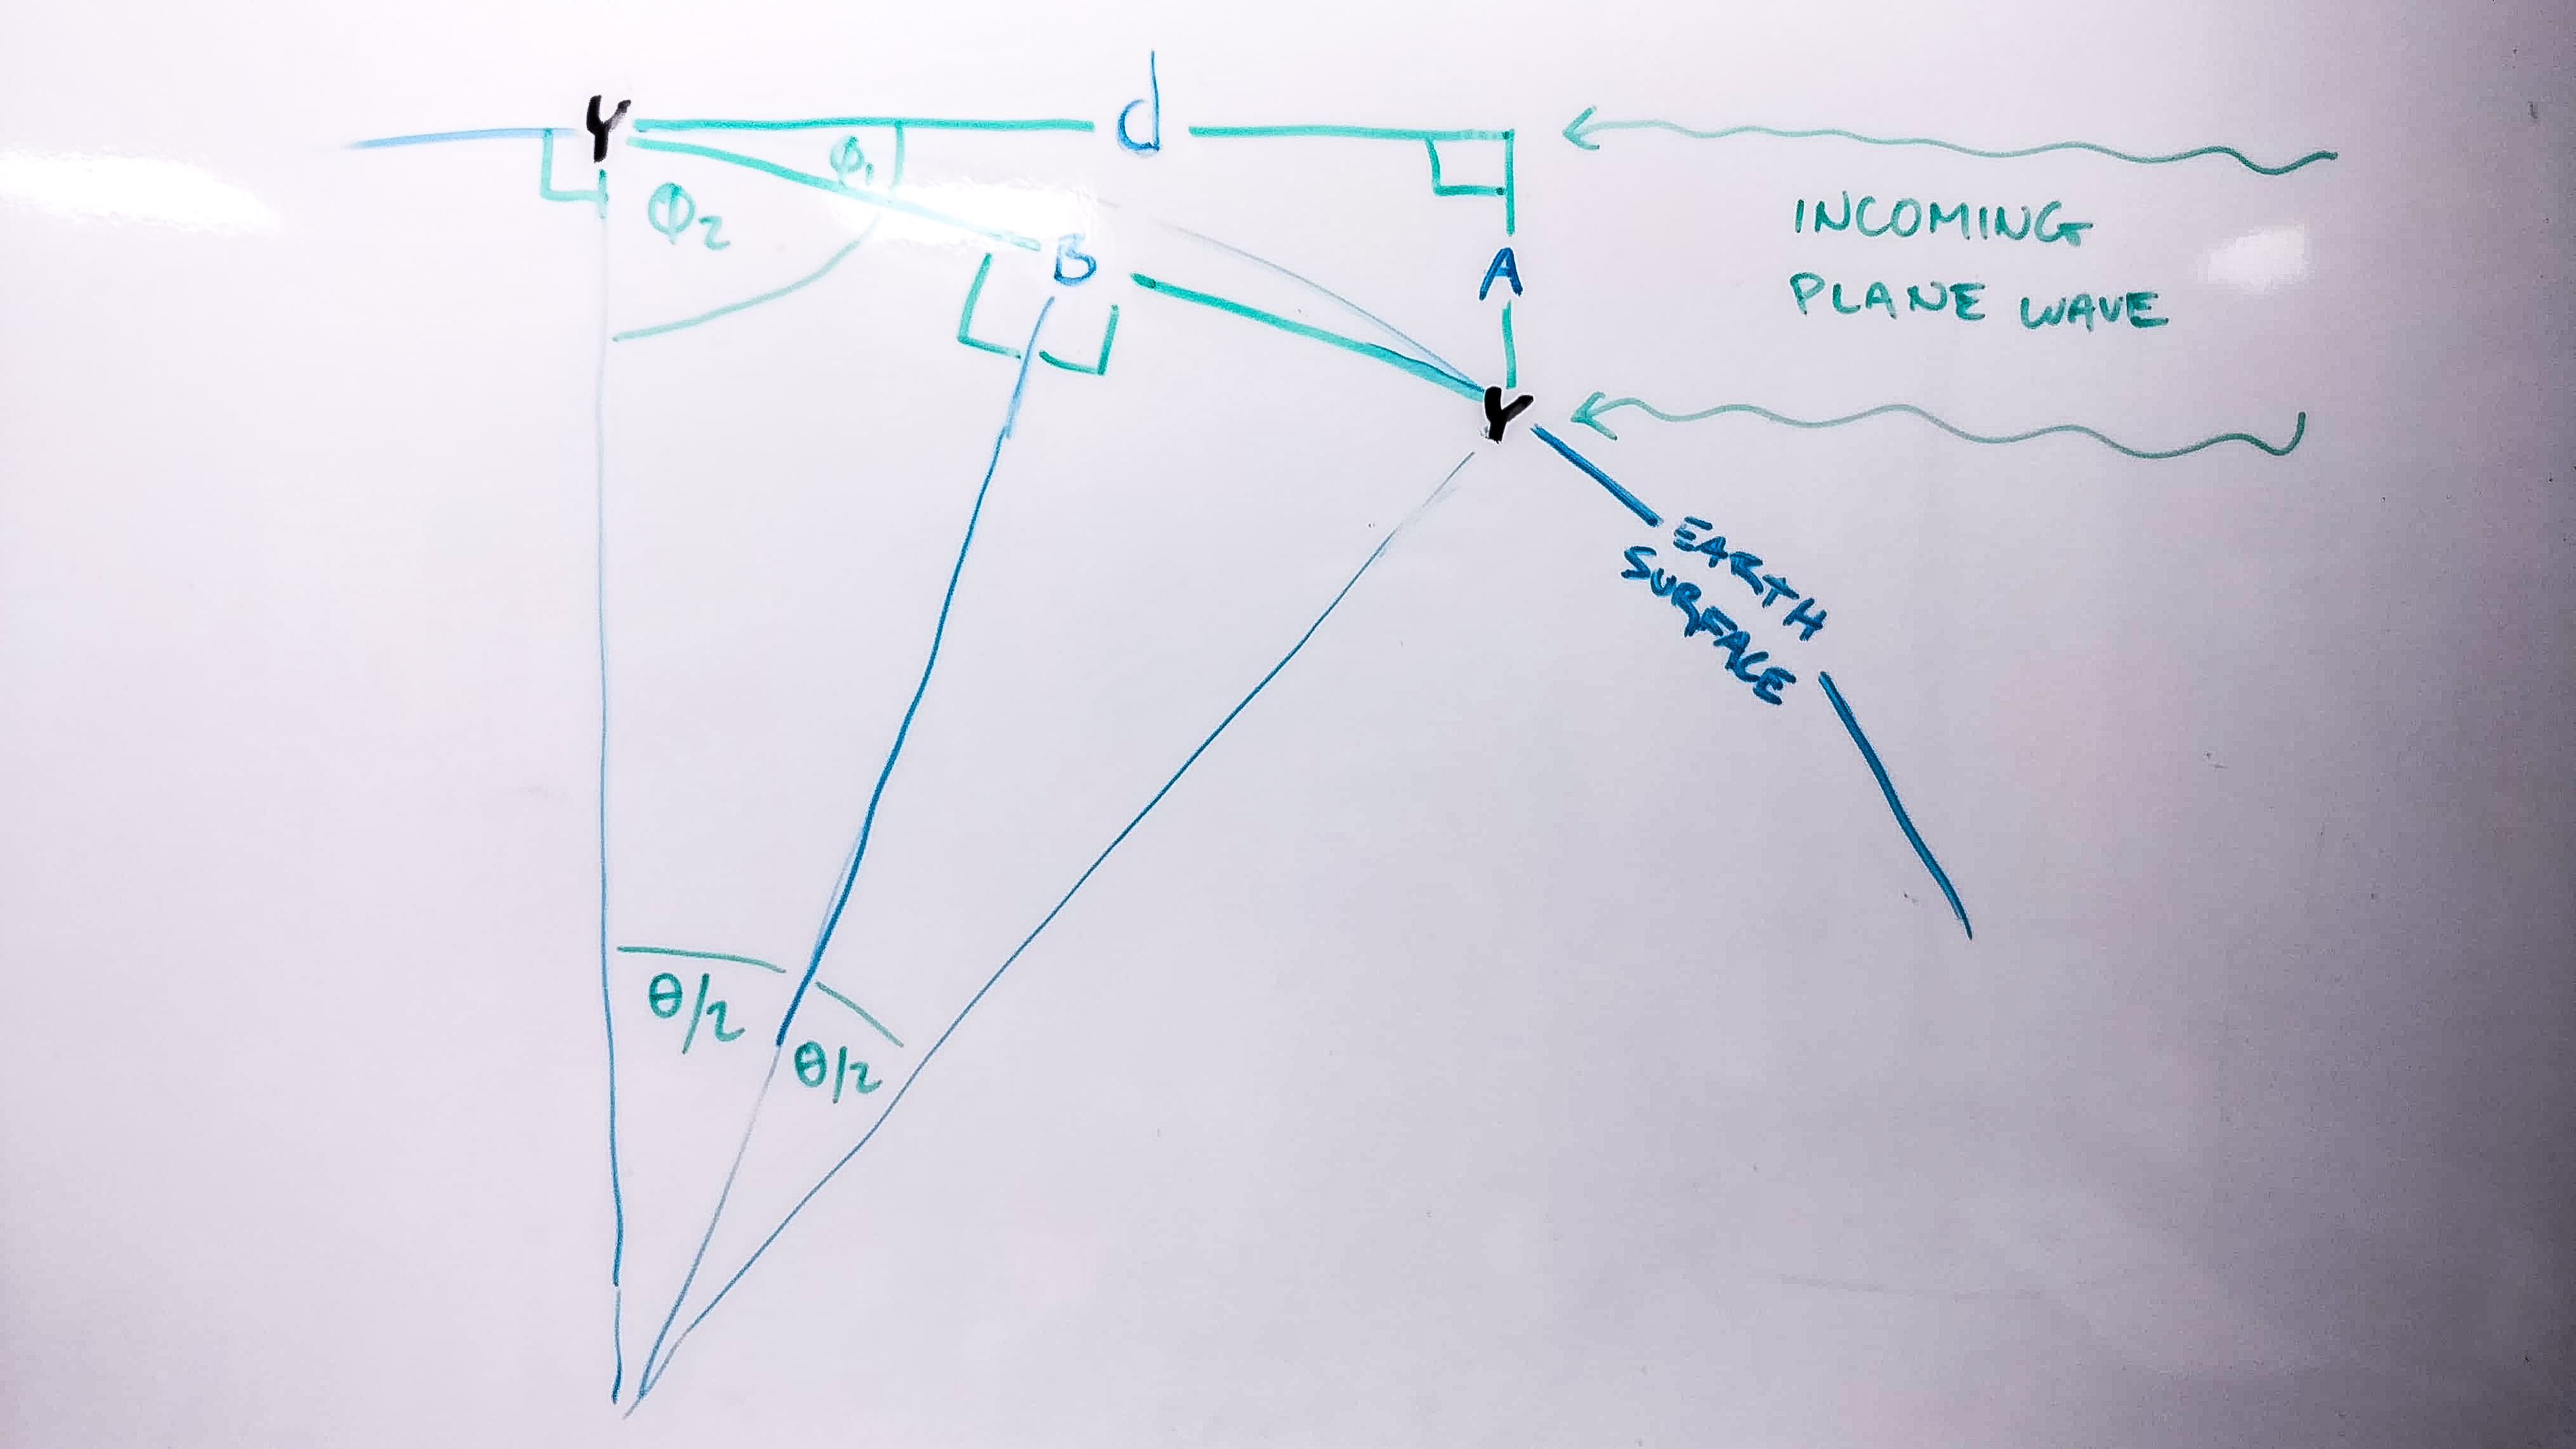 Y
d
ϕ₁
ϕ₂
B
A
Y
INCOMING
PLANE WAVE
EARTH
SURFACE
θ/2
θ/2